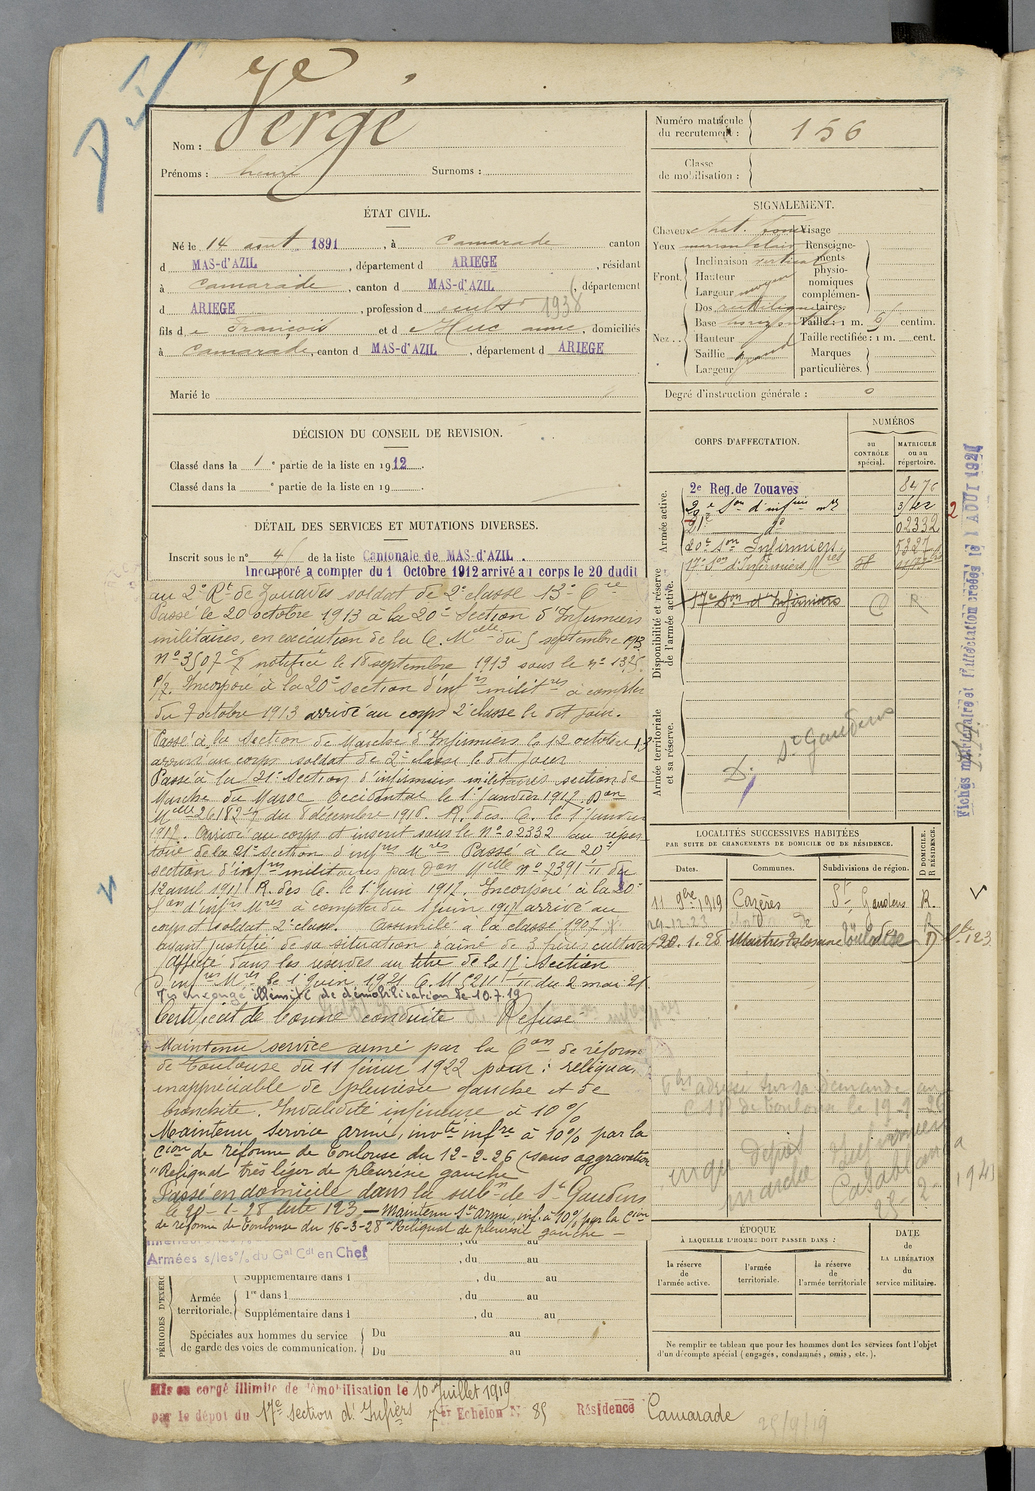 Vergé
Nom :
Prénoms : henri Surnoms :
ÉTAT CIVIL.
Né le 14 aout 1891, à Camarade canton
d MAS-d'AZIL, département d ARIEGE, résidant
à Camarade, canton d MAS-d'AZIL, département
d ARIEGE, profession d cultr 1938
fils de François et d Huc anne, domiciliés
à Camarade, canton d MAS-d'AZIL, département d ARIEGE
Marié le
DÉCISION DU CONSEIL DE REVISION.
Classé dans la 1e partie de la liste en 1912.
Classé dans la e partie de la liste en 19
DÉTAIL DES SERVICES ET MUTATIONS DIVERSES.
Inscrit sous le no 4 de la liste Cantonale de MAS-d'AZIL.
Incorporé a compter du 1 Octobre 1912 arrivé au corps le 20 dudit
au 2e Rt de Zouaves soldat de 2e classe 13e Cie
Passé le 20 octobre 1913 à la 20e Section d'Infirmiers
militaires, en exécution de la C. Melle du 5 septembre 1913
No 3507 notifiée le 18 septembre 1913 sous le no 1325
Incorporé à la 20e section d'infrs militres à compter
du 7 octobre 1913 arrivé au corps 2e classe le dit jour.
Passé à la Section de Marche d'Infirmiers le 12 octobre
arrivé au corps soldat de 2e classe le dit jour
Passé à la 21e Section d'infirmiers militaires section de
Marche du Maroc Occidental le 1er janvier 1917. Don
Melle 26182 du 8 décembre 1916. R. des C. le 1er janvier
1917. Arrivé au corps et inscrit sous le No 02332 au réper
toire de la 21e section d'infres Mres Passé à la 20e
section d'infres militaires par Don Melle no 2391 du
12 avril 1917. R. des C. le 1er juin 1917. Incorporé à la 20e
Son d'infres Mres à compter du 1 juin 1917 arrivé au
corps et soldat 2e classe. Assimilé à la classe 1907
ayant justifié de sa situation d'ainé de 3 frères cultiva
Affecté dans les réserves au titre de la 17e Section
d'infres Mres le 1er juin 1921 C. M 5211 du 2 mai 21
Mis en congé illimité de démobilisation le 10.7.19
Certificat de bonne conduite Refusé
Maintenu service armé par la Con de réforme
de Toulouse du 11 février 1922 pour : reliquat
inappréciable de pleurésie gauche et de
bronchite. Invalidité inférieure à 10 %
Maintenu service armé, invté infre à 10 % par la
Cion de réforme de Toulouse du 12-2-26 (sans aggravation
"Reliquat très léger de pleurésie gauche
Passé en domicile dans la subon de St Gaudens
le 20-1-28 liste 123. — Maintenu Sce armé, inf. à 10% par la Cion
de réforme de Toulouse du 16-3-28 "Reliquat de pleurésie gauche —
Armées s/les o/. du Gal Cdt en Chef
, du au
, du au
Supplémentaire dans l , du au
PÉRIODES D'EXERC
Armée territoriale. 1re dans l , du au
Supplémentaire dans l , du au
Spéciales aux hommes du service de garde des voies de communication. Du au
Du au
Mis en congé illimité de démobilisation le 10 Juillet 1919
par le dépôt du 17e Section d'Infiers 7er Echelon No 85 Résidence Camarade
25/9/19
Numéro matricule du recrutement : 156
Classe de mobilisation :
SIGNALEMENT.
Cheveux chat. foncé Visage
Yeux marron clair Renseigne-
Front. Inclinaison verticale ments
Hauteur physio-
Largeur moyen nomiques
complémen-
Dos rectiligne taires.
Nez.. Base horizontal Taille : 1 m. centim.
Hauteur Taille rectifiée : 1 m. cent.
Saillie grand Marques
Largeur particulières.
Degré d'instruction générale : 0
CORPS D'AFFECTATION.
NUMÉROS
au CONTRÔLE spécial.
MATRICULE ou au répertoire.
Armée active.
2e Reg. de Zouaves 8476
2e Son d'infiers mres
21e do 02332
20e Son Infirmiers 5327
17e Son d'Infirmiers Mres
Disponibilité et réserve de l'armée active.
17e Son d'Infirmiers
Armée territoriale et sa réserve.
D. St Gaudens
Fiches matriculaire et d'affectation créées le 1 AOUT 1927
LOCALITÉS SUCCESSIVES HABITÉES
PAR SUITE DE CHANGEMENTS DE DOMICILE OU DE RÉSIDENCE.
Dates. Communes. Subdivisions de région. D DOMICILE. R RÉSIDENCE.
11 9bre 1919 Cazères St Gaudens R.
29-12-23
20-1-28 Martres Tolosane Toulouse D Lte 123
Fche adressé sur sa demande au
C.S.R de Toulouse le 19-9-26
Infirmiers
Casablanca
23-2-1941
ÉPOQUE
À LAQUELLE L'HOMME DOIT PASSER DANS :
la réserve de l'armée active.
l'armée territoriale.
la réserve de l'armée territoriale
DATE de LA LIBÉRATION du service militaire.
Ne remplir ce tableau que pour les hommes dont les services font l'objet
d'un décompte spécial (engagés, condamnés, omis, etc.).